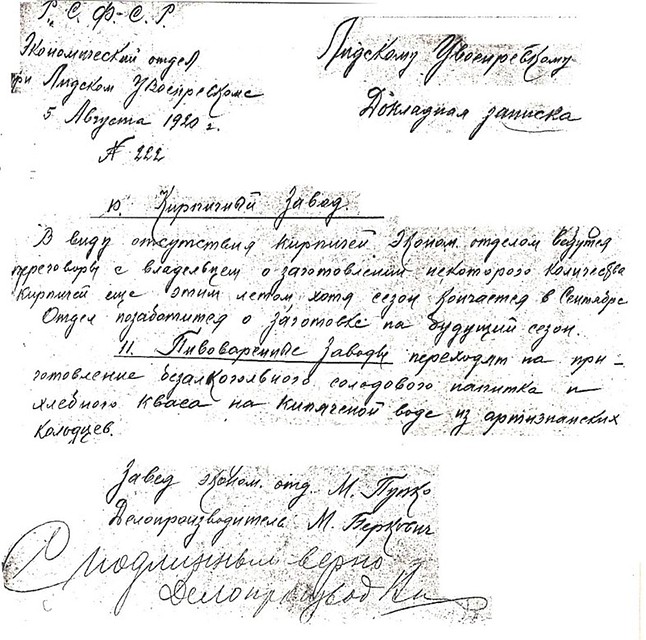 Р. С. Ф. С. Р.
Экономический отдел
при Лидском Увоенревкоме
5 Августа 1920 г.
№ 222
Лидскому Увоенревкому
Докладная записка
10. Кирпичный Завод.
В виду отсутствия кирпичей Эконом. отделом ведутся
переговоры с владельцем о заготовлении некоторого количества
кирпичей еще этим летом хотя сезон кончается в Сентябре
Отдел позаботится о заготовке на будущий сезон.
11. Пивоваренные Заводы переходят на при-
готовление безалкогольного солодового напитка и
хлебного кваса на кипяченой воде из артизианских
колодцев.
Завед эконом. отд. М. Пупко
Делопроизводитель М. Беркович
С подлинным верно
Делопроизвод